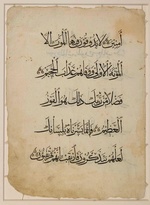 آمنين لا يذوقون فيها الموت إلا
الموتة الأولى ووقاهم عذاب الجحيم
فضلا من ربك ذلك هو الفوز
العظيم فإنما يسرناه بلسانك
لعلهم يتذكرون فارتقب إنهم مرتقبون